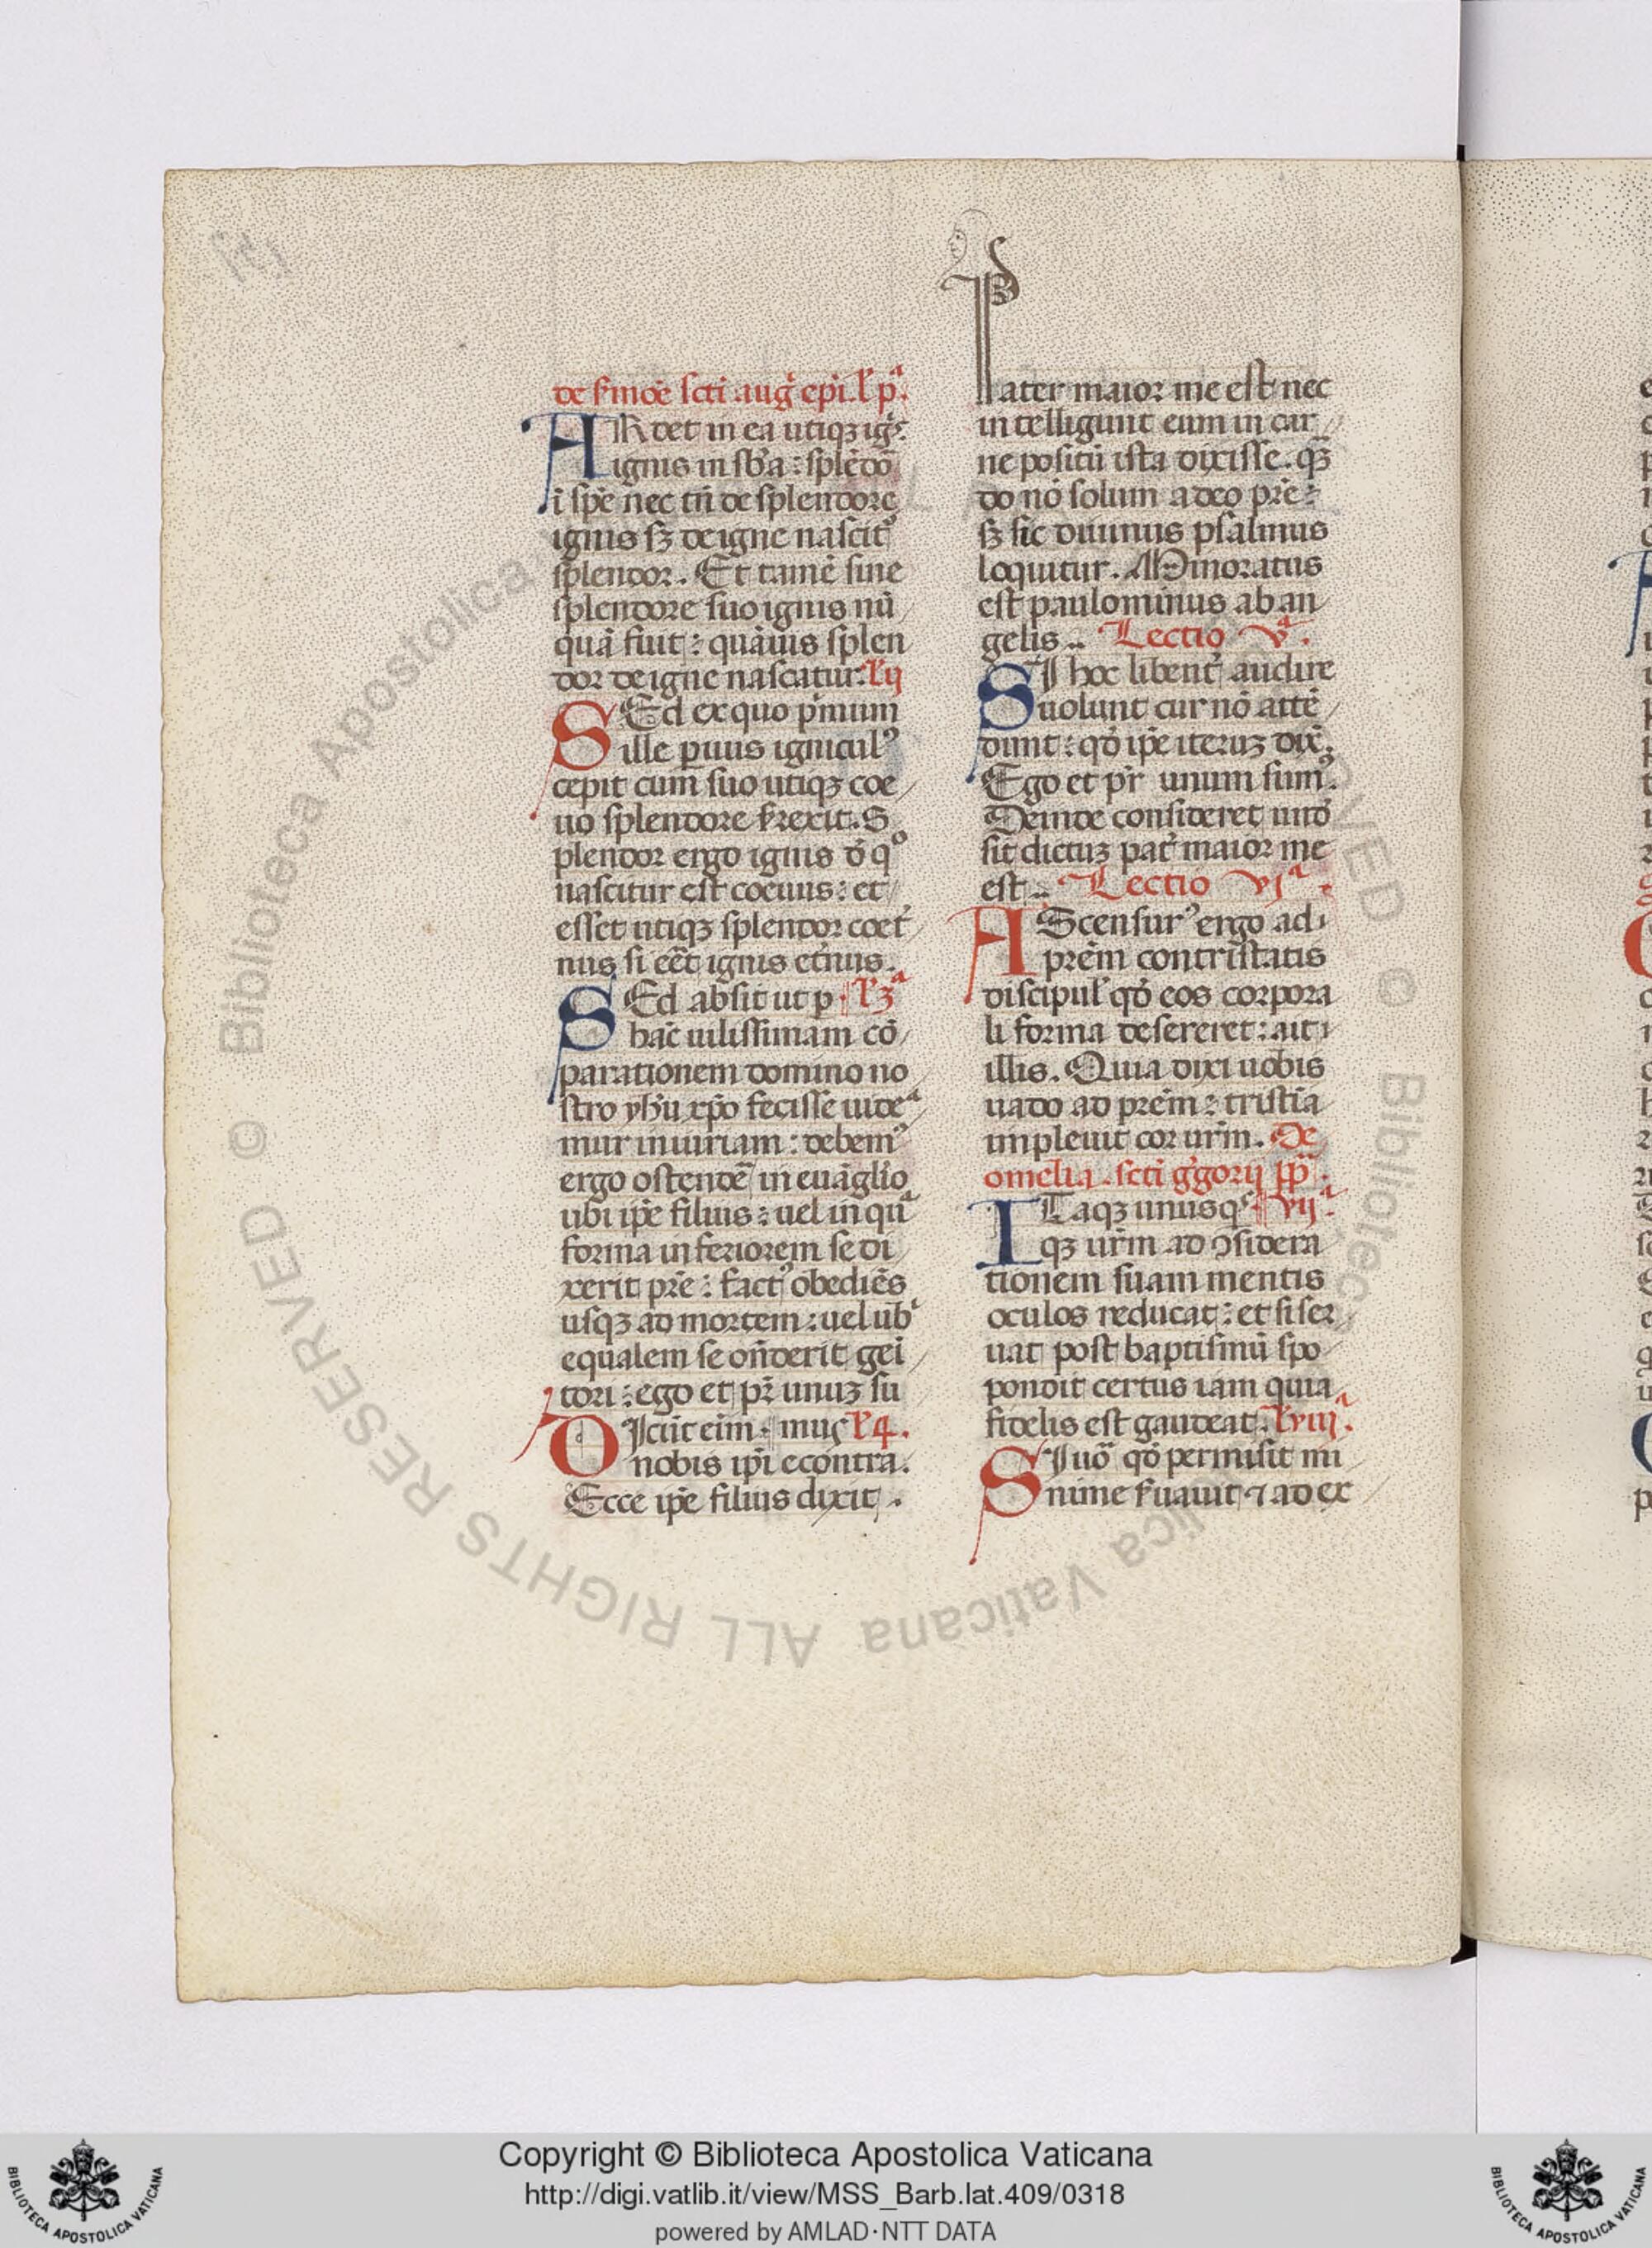 de ẜmoē scti augͥ epi. l' pͣ.
ARdet in ea utiqꝫ igͥs:
ignis in sb'a: splēdō
ī spē nec tn̄ de splendore
ignis sꝫ de igne nascit᷒
splendor. Et tamē sine
splendore suo ignis nū
quā fuit: quāuis splen
dor de igne nascatur. l' ij
SEd ex quo pͥmum
ille ꝑuus ignicul᷒
cepit cum suo utiqꝫ coe
uo splendore ẜrexit. S
plendor ergo ignis d' qͦ
nascitur est coeuus: et
esset utiqꝫ splendor coet'
nus si eēt ignis et'nus.
SEd absit ut ꝑ l' 3ͣ
hāc uilissimam cō
parationem domino no
stro yh'u xp̄o fecisse uideͣ
mur iniuriam: debem᷒
ergo ostendē in euāgl'io
ubi ip̄e filius: uel in quͣ
forma inferiorem se di
xerit pr̄e: fact᷒ obediēs
usqꝫ ad mortem: uel ubͥ
equalem se on̄derit geī
tori: ego et pr̄ unuꝫ su
DIcūt eim mus l' 4.
nobis ip̄i econtra.
Ecce ip̄e filius dixit.
Pater maior me est nec
intelligunt eum in car
ne positū ista dixisse. qn̄
do nō solum a deo pr̄e:
sꝫ sic diuinus psalmus
loquitur. Minoratus
est paulominus ab an
gelis. Lectio vͣ.
SI hoc libent' audire
uolunt cur nō attē
dunt: qd' ip̄e iteruꝫ dix̄.
Ego et pr̄ unum sum᷒.
Deinde consideret unde
sit dictuꝫ pat' maior me
est. Lectio vjͣ.
AScensur᷒ ergo ad
pr̄em contristatis
discipul' qd' eos corpora
li forma desereret: ait
illis. Quia dixi uobis
uado ad pr̄em: tristia
impleuit cor ur̄m. De
omelia scti gͥgorij pp̄.
ITaqꝫ unusqͥs vijͣ.
qꝫ ur̄m ad ꝯsidera
tionem suam mentis
oculos reducat: et si ser
uat post baptismū spo
pondit certus iam quia
fidelis est gaudeat. l' viijͣ.
SI uō qd' permisit mi
nime ẜuauit ⁊ ad ex
Copyright © Biblioteca Apostolica Vaticana
http://digi.vatlib.it/view/MSS_Barb.lat.409/0318
powered by AMLAD·NTT DATA
BIBLIOTECA APOSTOLICA VATICANA
BIBLIOTECA APOSTOLICA VATICANA
© Biblioteca Apostolica Vaticana ALL RIGHTS RESERVED